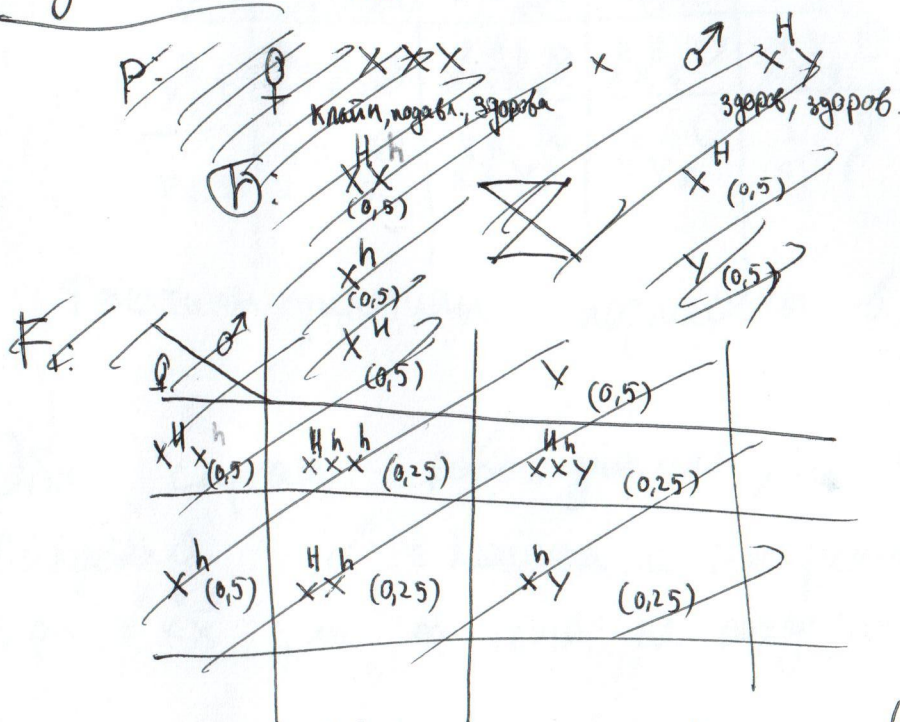 P: ♀ X X X × ♂ X^H Y
клайн, подавл., здорова здоров, здоров.
X^H X^h X^H (0,5)
(0,5)
X^h Y (0,5)
(0,5)
F₁: ♂ X^H Y
♀ (0,5) (0,5)
X^H X^h (0,5) X^H X^h X^h (0,25) X^H X^h Y (0,25)
X^h (0,5) X^H X^h (0,25) X^h Y (0,25)